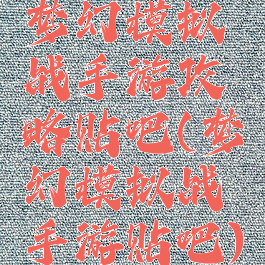 梦幻模拟
战手游攻
略贴吧(梦
幻模拟战
手游贴吧)